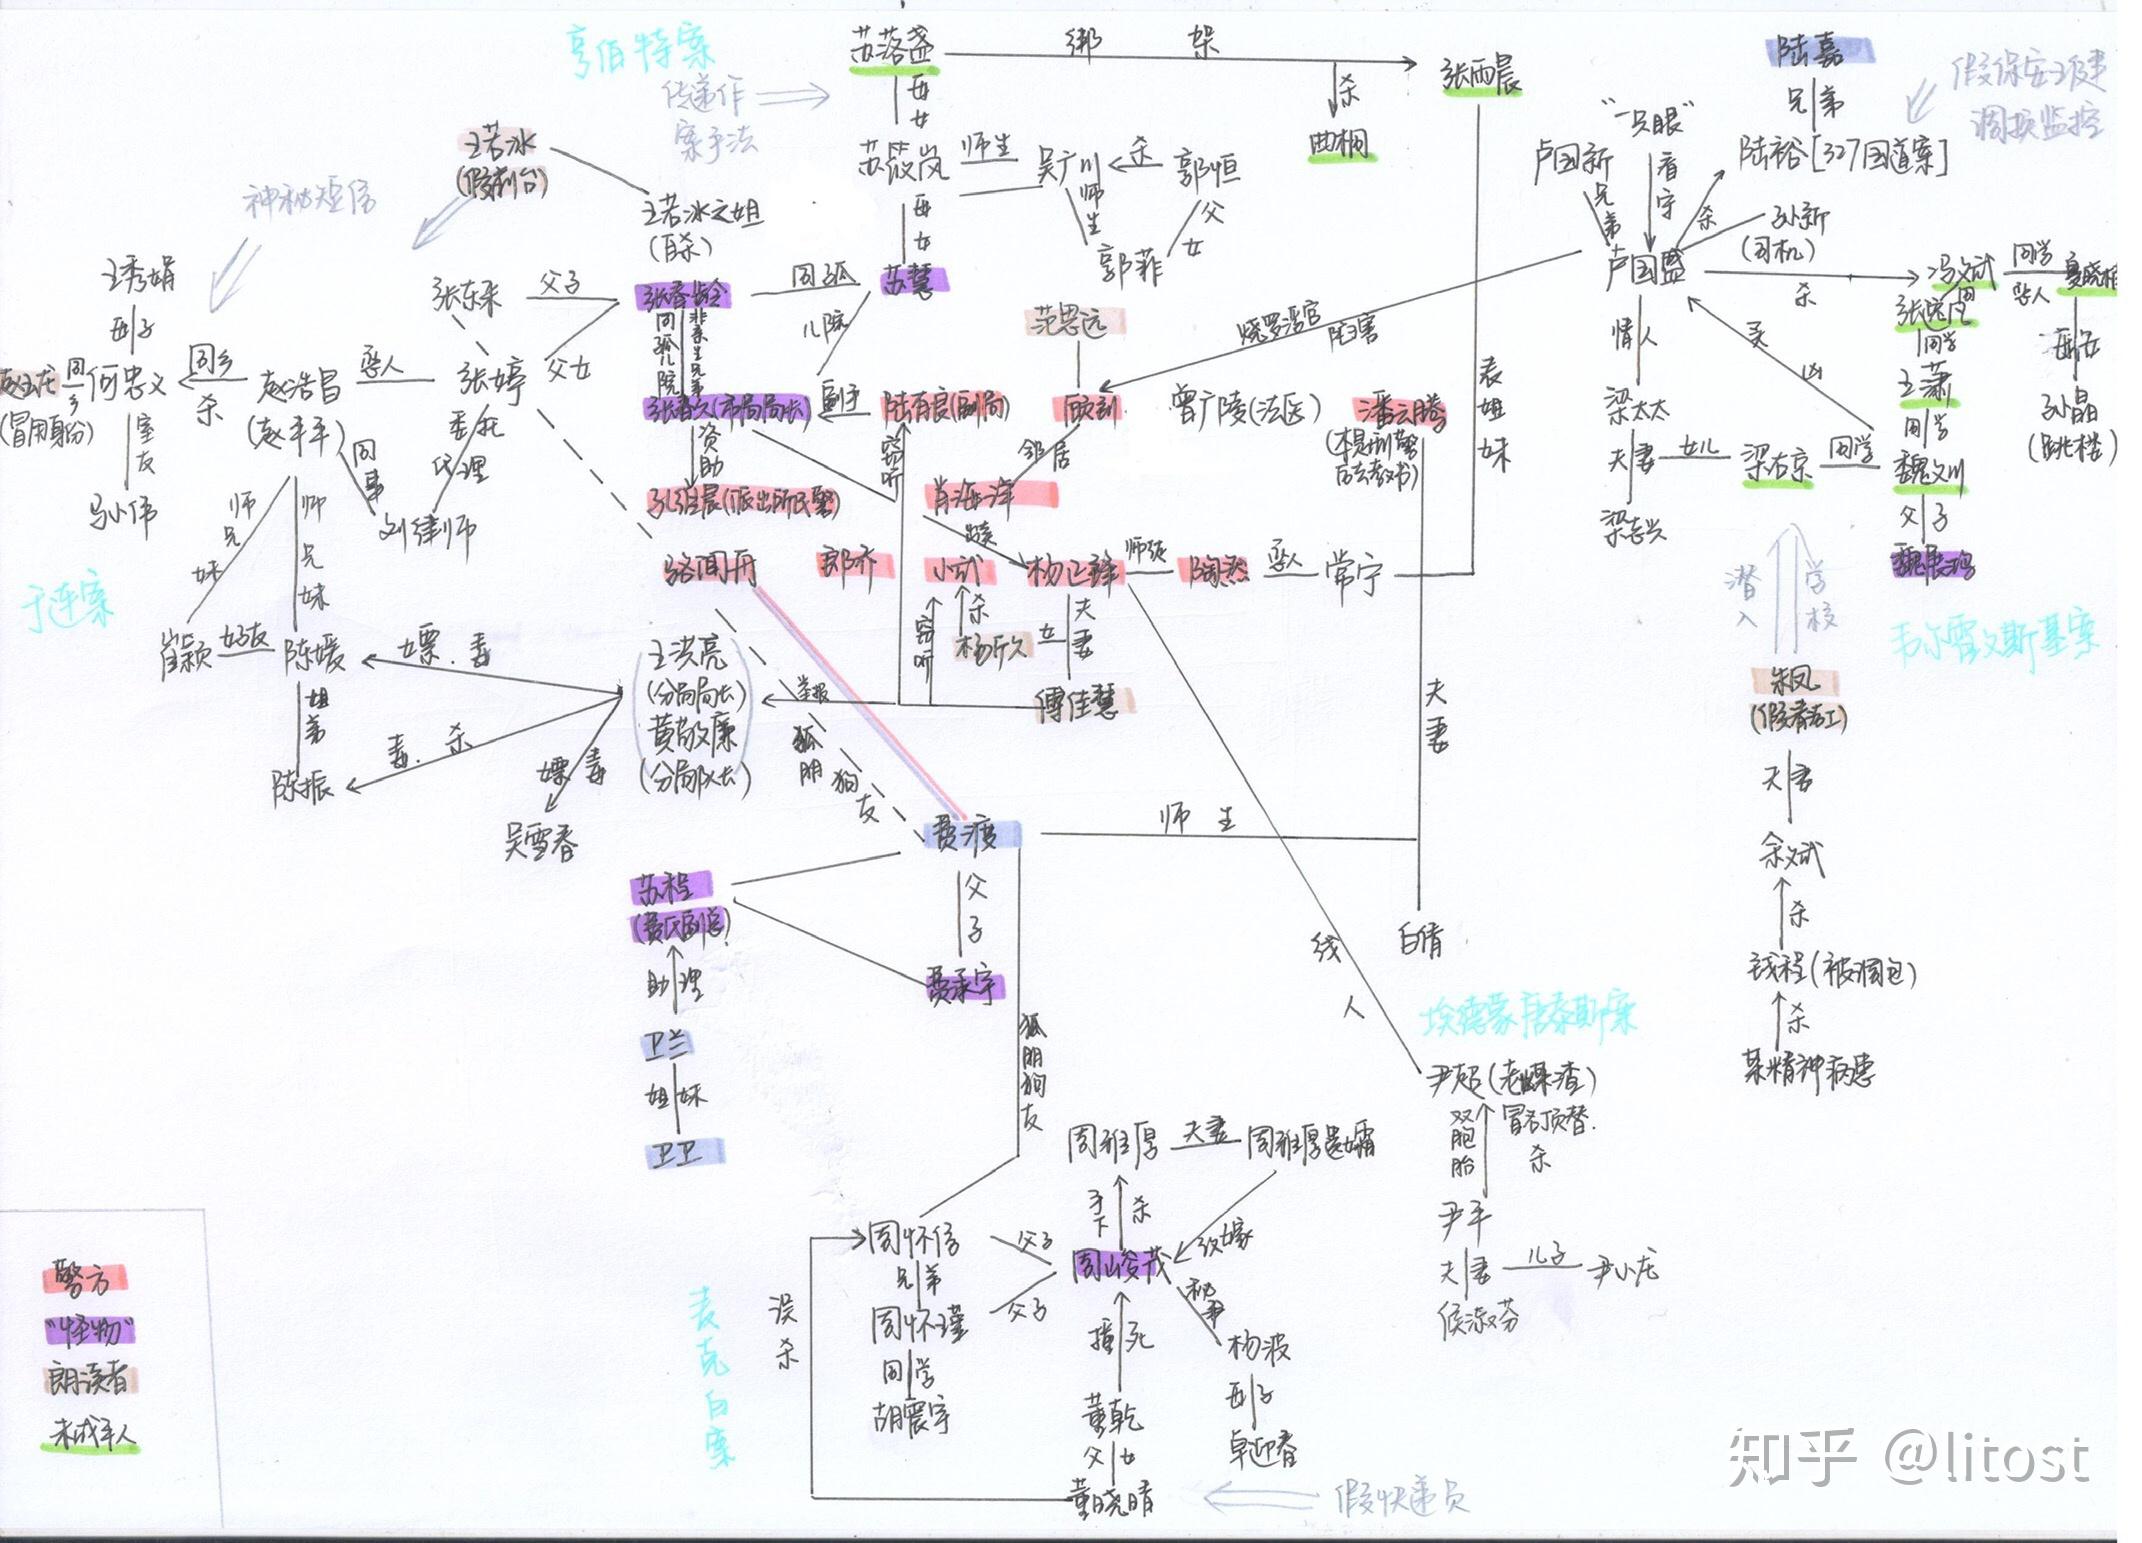 亨伯特案
苏落盏
绑 架
张雨晨
陆嘉
假保安王健
调换监控
传递作
案手法
母女
杀
曲桐
兄弟
"一只眼"
看守
陆裕[327国道案]
王若冰
(假前台)
苏筱岚
师生
吴广川
杀
郭恒
卢国新
兄弟
杀
孙新
(司机)
神秘短信
王若冰之姐
(自杀)
母女
师生
父女
郭菲
卢国盛
杀
冯斌
同学
恋人
夏晓楠
王秀娟
母子
张东来
父子
张春龄
同孤
儿院
苏慧
范思远
烧罗浮宫
陷害
情人
买凶
张逸凡
同学
王潇
同学
魏文川
父子
魏展鸿
母女
孙晶
(跳楼)
赵玉龙
(冒用身份)
同乡
何忠义
同乡
杀
赵浩昌
(赵丰年)
恋人
张婷
父女
同孤儿院
非亲生兄弟
张春久(市局局长)
副手
陆有良(副局)
顾钊
曾广陵(法医)
潘云腾
(本是刑警
后去教书)
表姐妹
梁太太
夫妻
女儿
梁右京
同学
梁志兴
室友
马小伟
同事
委托
代理
刘律师
资助
孔维晨(派出所民警)
窃听
邻居
肖海洋
师兄妹
师兄妹
于连案
骆闻舟
郎乔
小武
杨正锋
师徒
陶然
恋人
常宁
潜入
学校
韦尔霍文斯基案
崔颖
好友
陈媛
嫖.毒
王洪亮
(分局局长)
黄敬廉
(分局队长)
举报
窃听
杀
杨欣
女
夫妻
傅佳慧
夫妻
朱凤
(假看右工)
姐弟
毒.杀
陈振
嫖毒
吴雪春
狐朋
狗友
夫妻
余斌
费渡
师 生
苏程
(费氏副总)
父子
线人
白倩
杀
钱程(被调包)
助理
费承宇
杀
某精神病患
卫兰
姐妹
卫卫
狐朋狗友
埃德蒙唐泰斯案
尹超(老煤渣)
双胞胎
冒名顶替.
杀
周雅厚
夫妻
周雅厚遗孀
尹平
手下
杀
改嫁
周怀信
父子
周峻茂
夫妻
儿子
尹小龙
侯淑芬
兄弟
周怀瑾
父子
秘书
杨波
误杀
撞死
麦克白案
同学
胡震宇
董乾
母子
卓迎春
父女
董晓晴
假快递员
警方
"怪物"
朗读者
未成年人
知乎 @litost